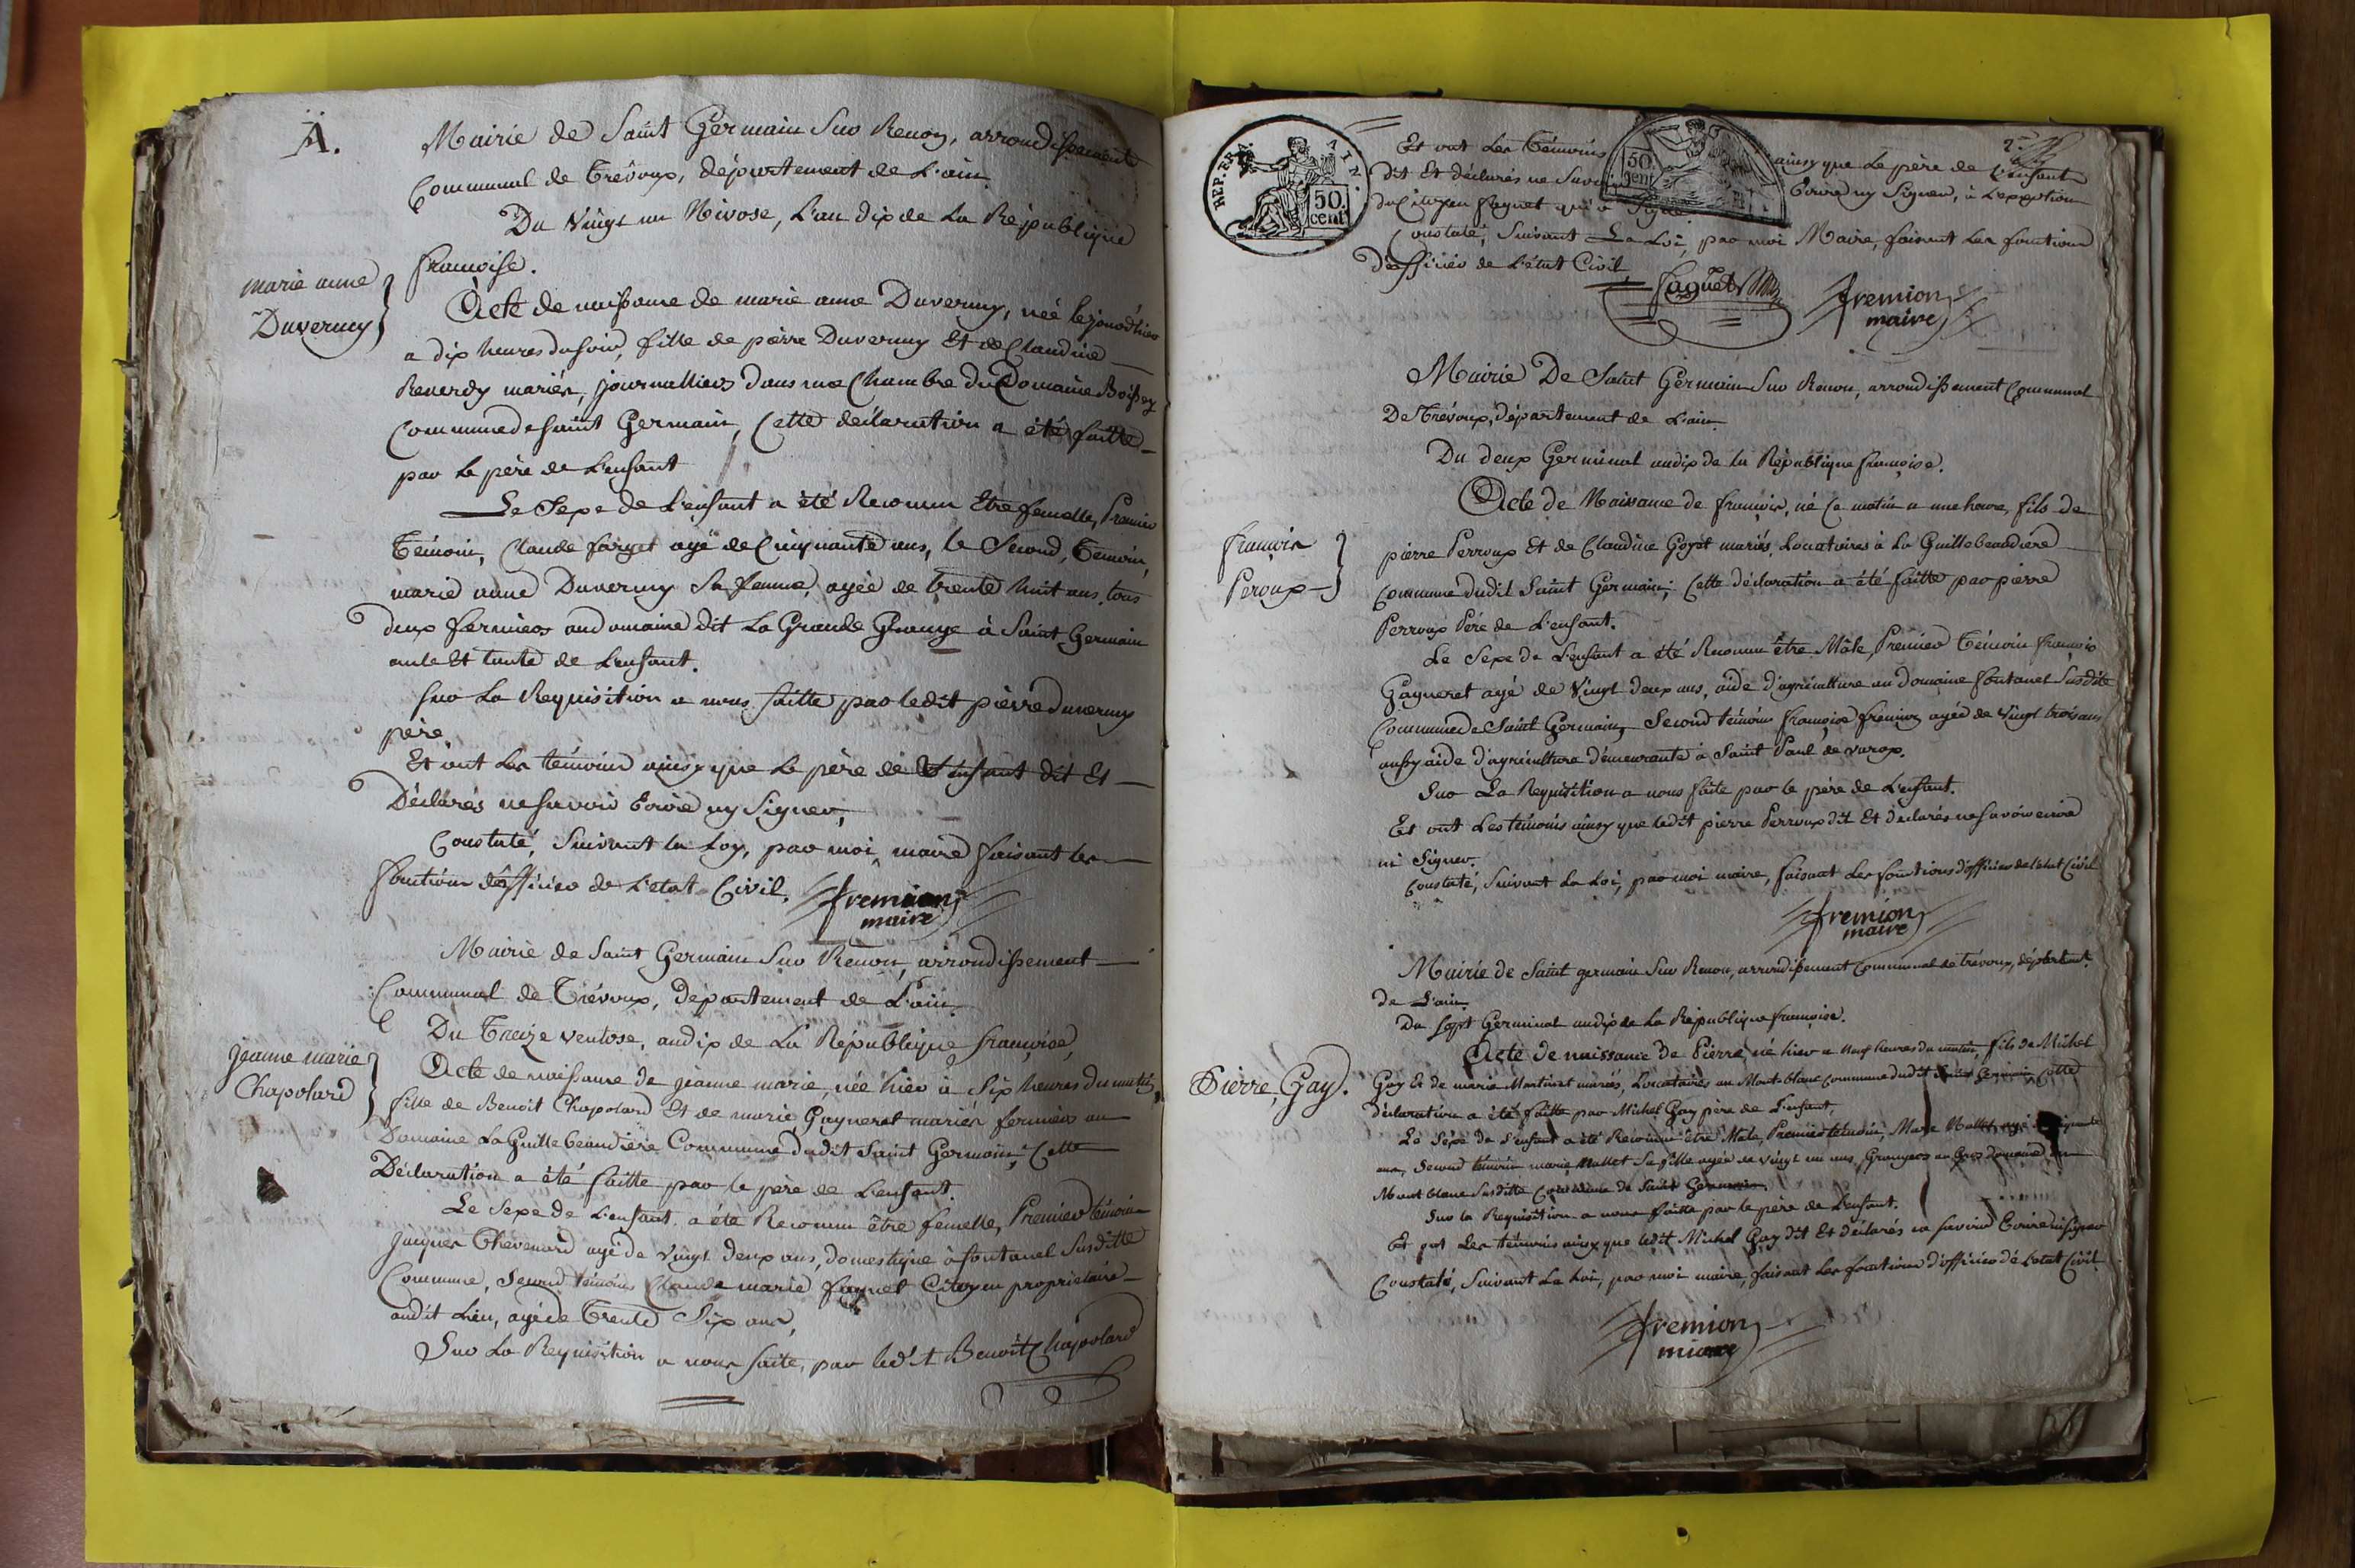 A.
Mairie de Saint Germain Sur Renon, arrondissement
Communal de Trévoux, département de L'ain.
Du Vingt un Nivose, L'an dix de La République
françoise.
marie anne
Duverny
Acte de naissance de marie anne Duverny, née le jour d'hier
a dix heures du soir, fille de pierre Duverny Et de Claudine
Reverdy mariés, journalliers dans une Chambre du Domaine Boissey
Commune de saint Germain, Cette déclaration a été faitte
par Le père de L'enfant
Le Sexe de L'enfant a été Reconnu Etre femelle, Premier
Témoin, Claude farget agé de Cinquante ans, le Second, Temoin,
marie anne Duverny Sa femme, agée de trente huit ans, tous
deux fermiers au domaine dit La Grande Grange à Saint Germain
oncle Et tante de L'enfant.
Sur La Requisition a nous faitte par ledit pierre duverny
père
Et ont Les témoins ainsy que Le père de L'enfant dit Et
Déclarés ne savoir Ecrire ny Signer,
Constaté, Suivant la Loy, par moi maire faisant les
fonctions d'officier de L'etat Civil.
fremion
maire
Mairie de Saint Germain Sur Renon, arrondissement
Communal de Trévoux, département de L'ain.
Du Treize ventose, an dix de La République françoise,
jeanne marie
Chapolard
Acte de naissance de jeanne marie, née hier à Six heures du matin,
fille de Benoit Chapolard Et de marie Gagneret mariés fermiers au
Domaine La Guillebeaudiere Commune dudit Saint Germain, Cette
Déclaration a été faitte par le père de L'enfant.
Le Sexe de L'enfant a été Reconnu être femelle, Premier témoin
jacques Thevenard agé de vingt deux ans, domestique à fontanel Susditte
Commune, Second témoin Claude marie faguet Citoyen propriétaire
audit Lieu, agé de Trente Six ans,
Sur La Requisition a nous faite, par ledit Benoit Chapolard
REP. FRA.
AIN.
50.
cent
50.
cent
2me
Et ont Les témoins ainsy que Le père de L'enfant
dit Et déclarés ne Savoir Ecrire ny Signer, à L'exception
du Citoyen faguet qui a Signé
Constaté, Suivant La Loi, par moi Maire, faisant les fonctions
d'officier de L'état Civil
faguet
fremion
maire
Mairie De Saint Germain Sur Renon, arrondissement Communal
De Trévoux, département de L'ain.
Du deux Germinal an dix de la République françoise.
françois
Peroux
Acte de Naissance de françois, né Ce matin a une heure, fils de
pierre Perroux Et de Claudine Goyat mariés, Locataires à La Guillebeaudière
Commune dudit Saint Germain; Cette déclaration a été faitte par pierre
Perroux Père de L'enfant.
Le Sexe de L'enfant a été Reconnu être Mâle, Premier Témoin françois
Gagneret agé de Vingt deux ans, aide d'agriculture au domaine fontanel Susdite
Commune de Saint Germain, Second témoin françoise agée de Vingt trois ans
aussy aide d'agriculture démeurante à Saint Paul de varax.
Sur La Requisition a nous faite par le père de L'enfant.
Et ont Les témoins ainsy que ledit pierre Perroux dit Et déclarés ne savoir ecrire
ni Signer.
Constaté, Suivant La Loi, par moi maire, faisant Les fonctions d'officier de l'état Civil
fremion
maire
Mairie de Saint germain Sur Renon, arrondissement Communal de trévoux, département
de L'ain
Du Sept Germinal an dix de La République françoise.
Pierre, Gay.
Acte de naissance de Pierre, né hier a neuf heures du matin, fils de Michel
Gay Et de marie Martinet mariés, Locataires au Mont blanc Commune dudit Saint Germain, Cette
déclaration a été faitte par Michel Gay père de L'enfant,
Le Sexe de L'enfant a été Reconnu être Mâle, Premier témoin, Mallet, agé
ans, Second témoin marie Mallet Sa fille agée de vingt un ans, Grangers au Gros domaine du
Mont blanc Susditte Commune de Saint Germain.
Sur la Requisition a nous faitte par le père de L'enfant.
Et ont Les témoins ainsy que ledit Michel Gay dit Et déclarés ne savoir Ecrire ni Signer
Constaté, Suivant La Loi, par moi maire, faisant Les fonctions d'officier de l'etat Civil
fremion
maire